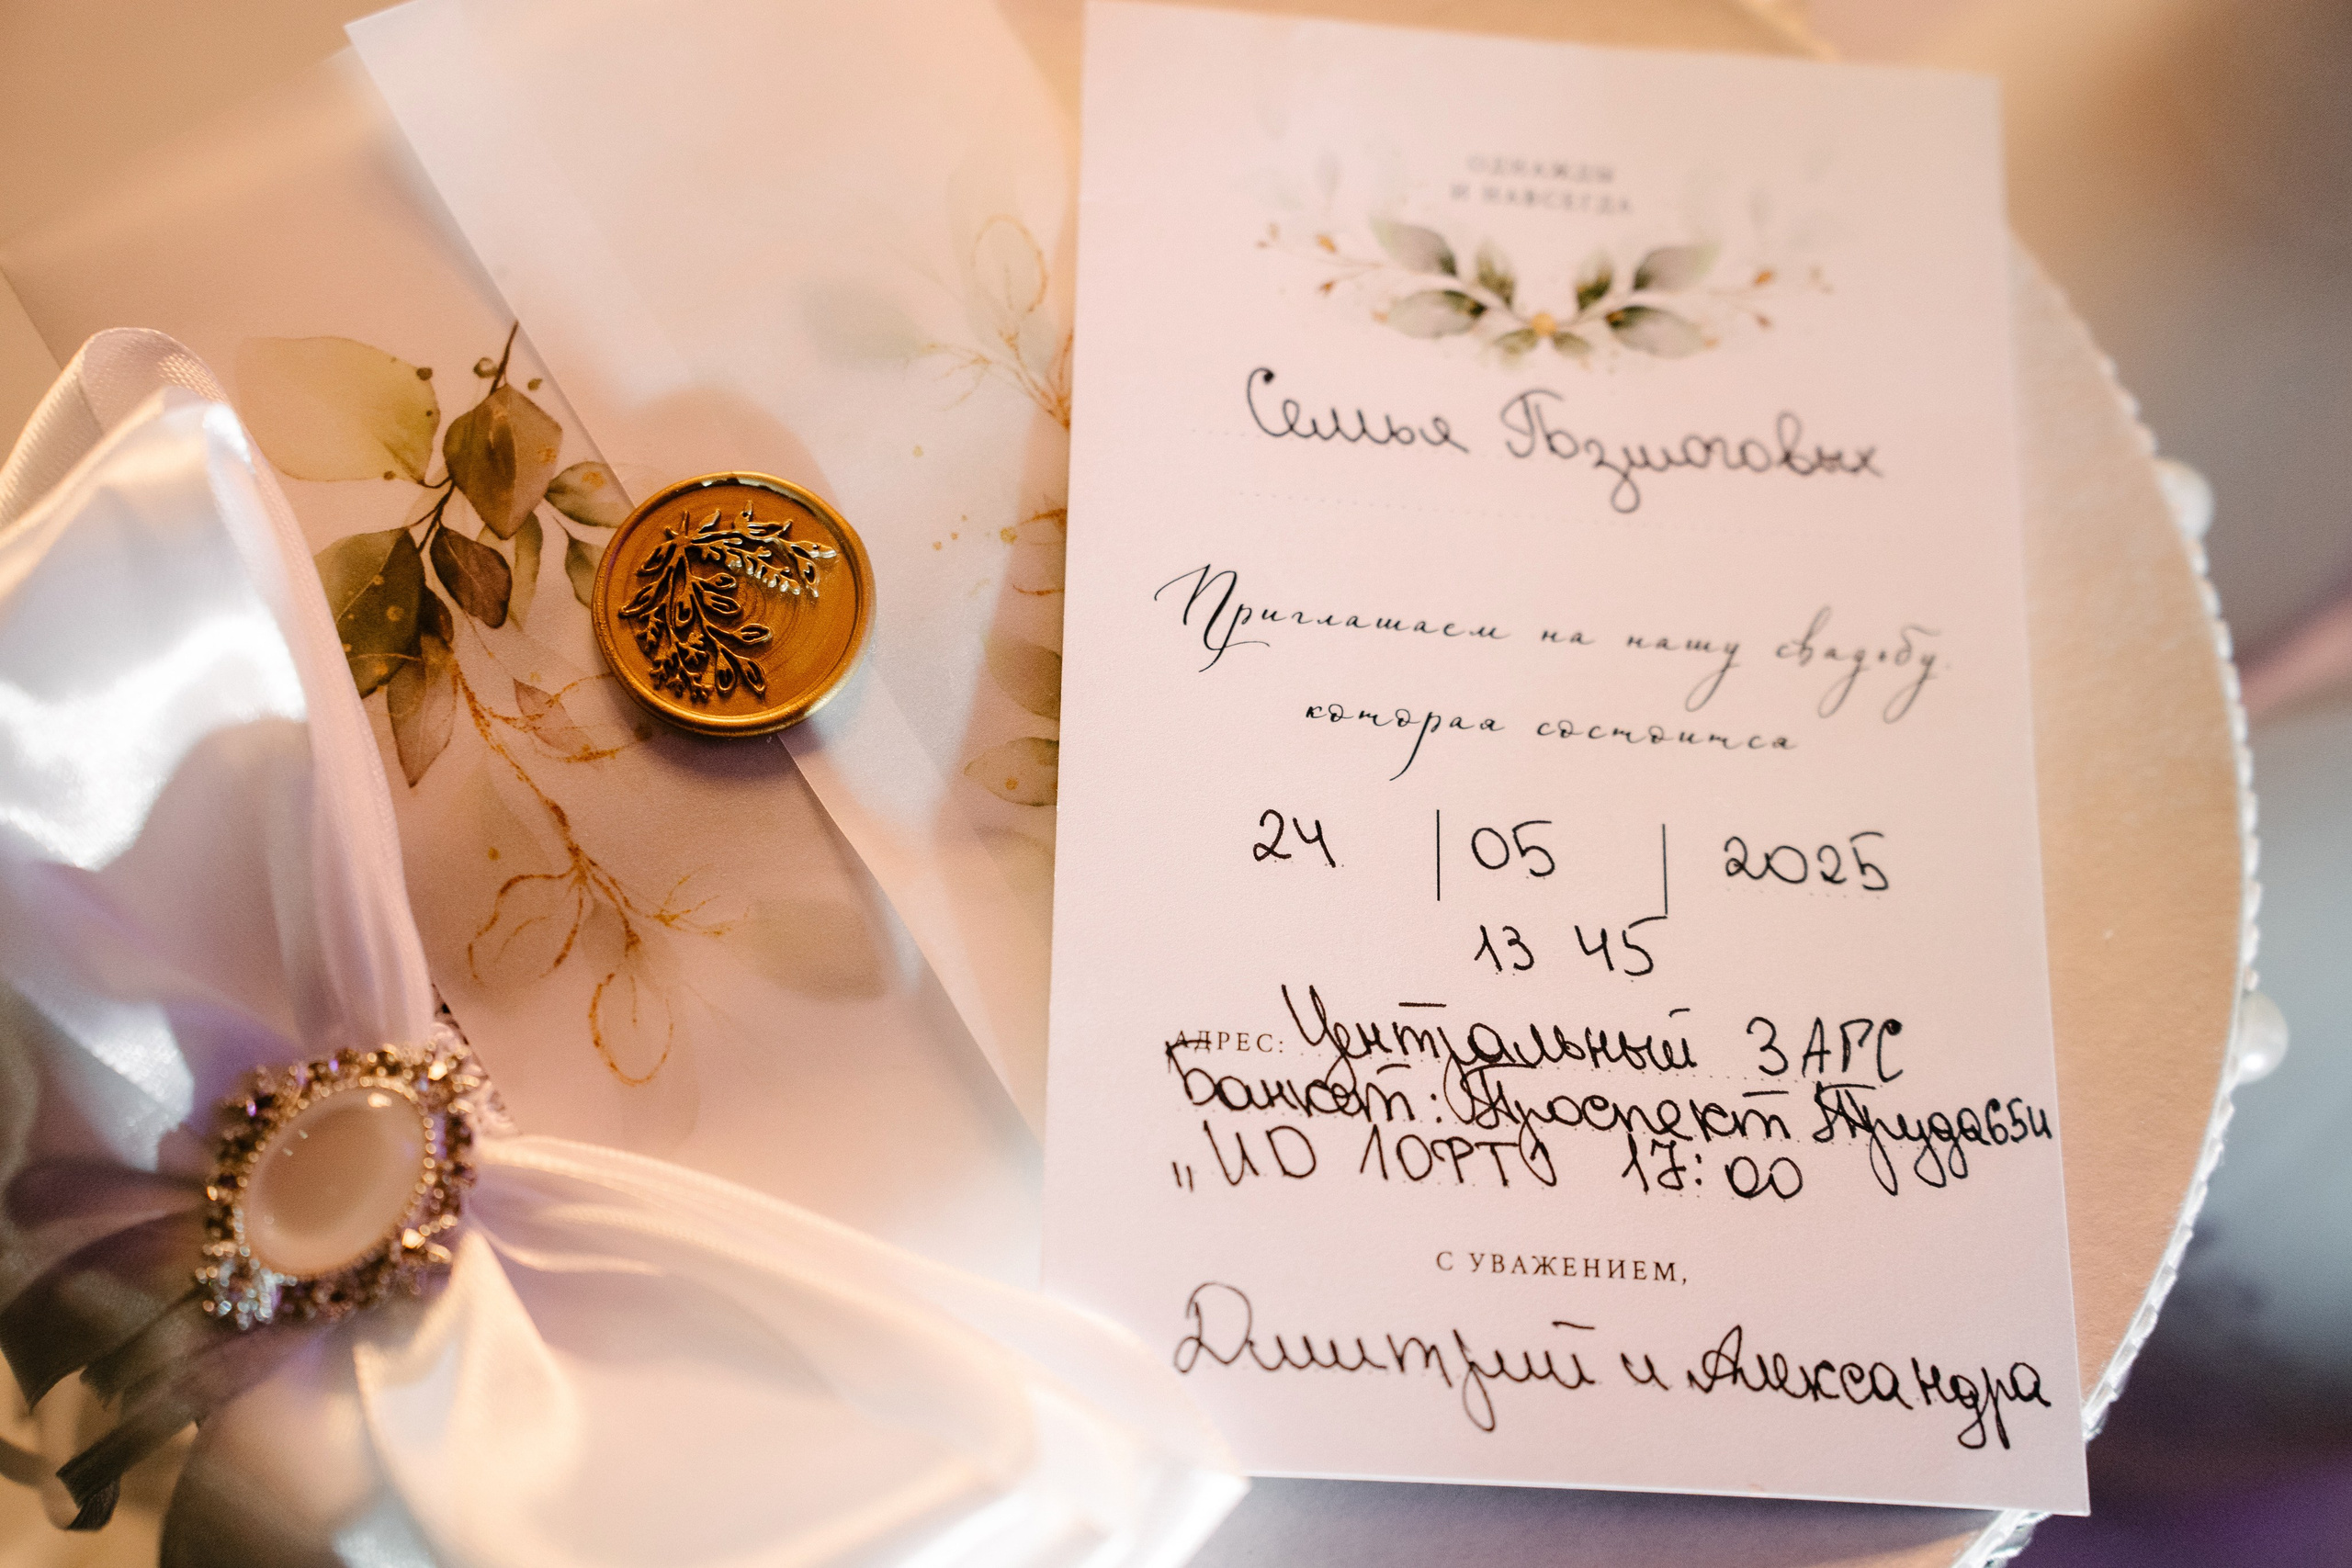 ОДНАЖДЫ
И НАВСЕГДА
Семья
Приглашаем на нашу свадьбу,
которая состоится
24 | 05 | 2025
13 45
АДРЕС: Центральный ЗАГС
Банкет: Проспект Труда 65и
17:00
С УВАЖЕНИЕМ,
Дмитрий и Александра